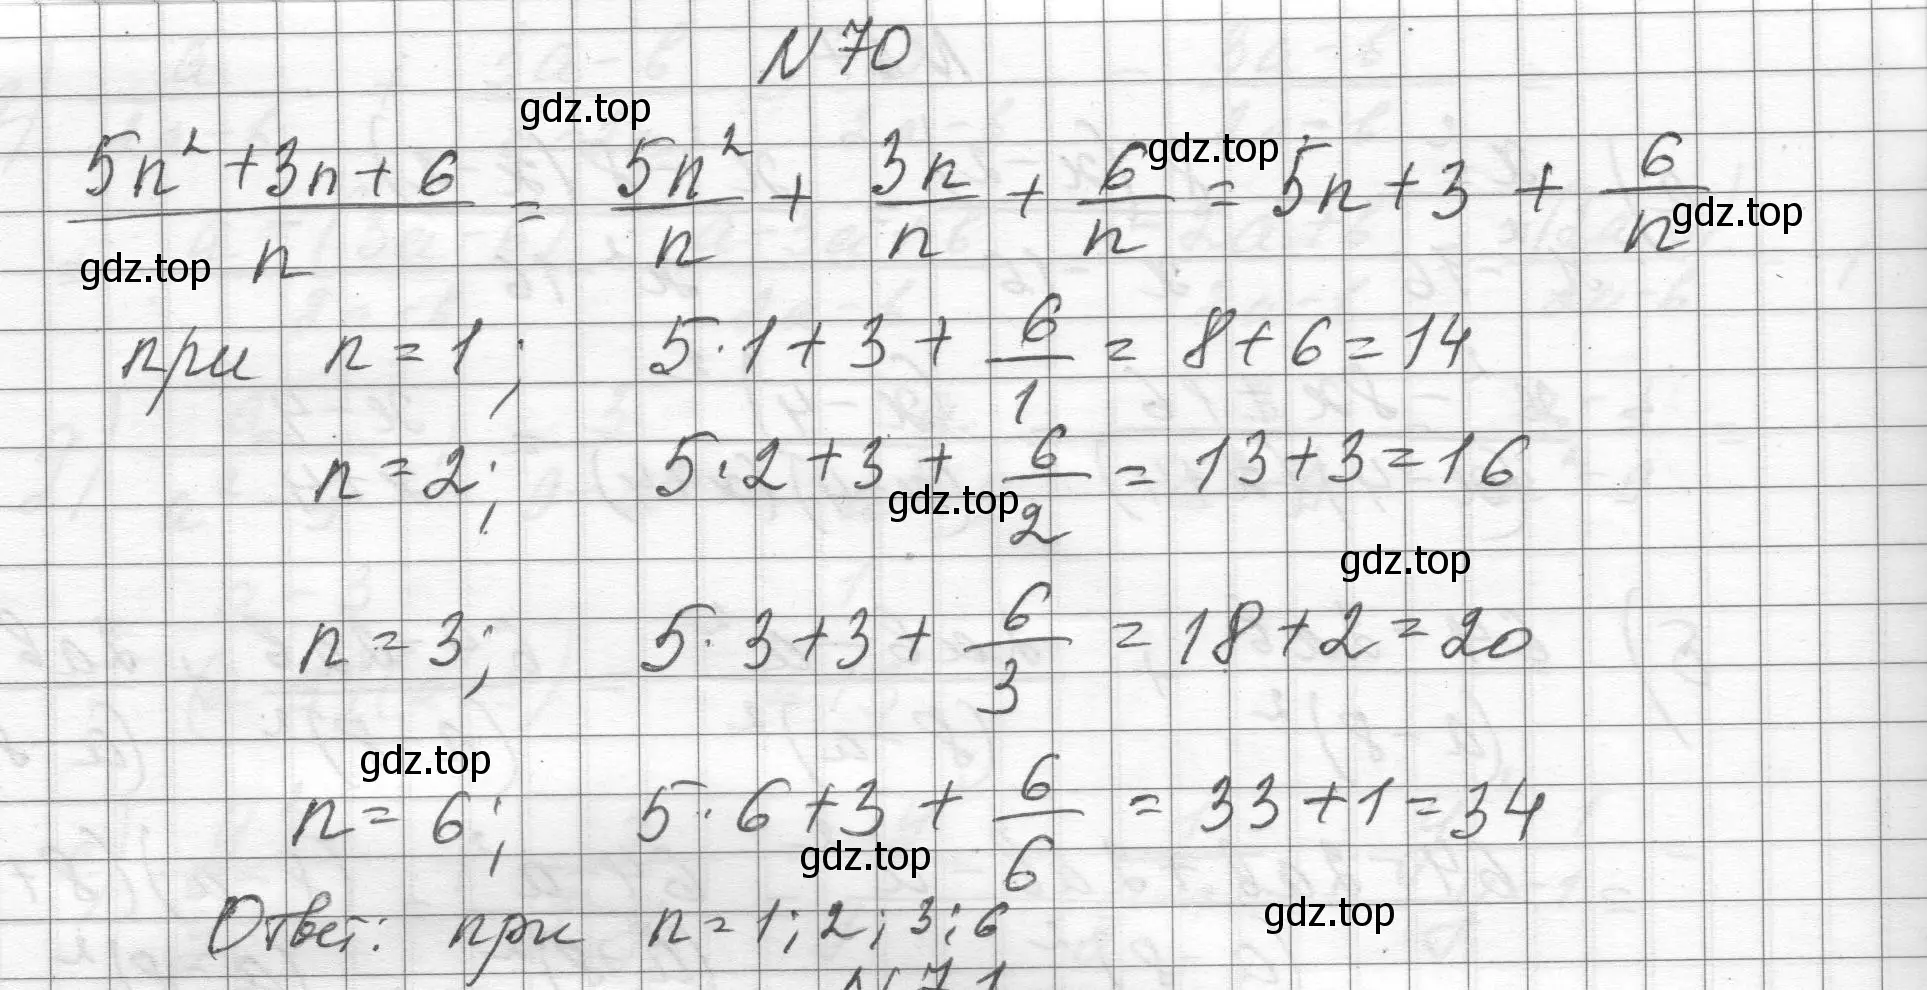 N 70
gdz.top
(5n² + 3n + 6)/n = 5n²/n + 3n/n + 6/n = 5n + 3 + 6/n
gdz.top
gdz.top
gdz.top
при n = 1; 5·1 + 3 + 6/1 = 8 + 6 = 14
n = 2; 5·2 + 3 + 6/2 = 13 + 3 = 16
gdz.top
gdz.top
n = 3; 5·3 + 3 + 6/3 = 18 + 2 = 20
gdz.top
n = 6; 5·6 + 3 + 6/6 = 33 + 1 = 34
gdz.top
gdz.top
Ответ: при n = 1; 2; 3; 6
N 71